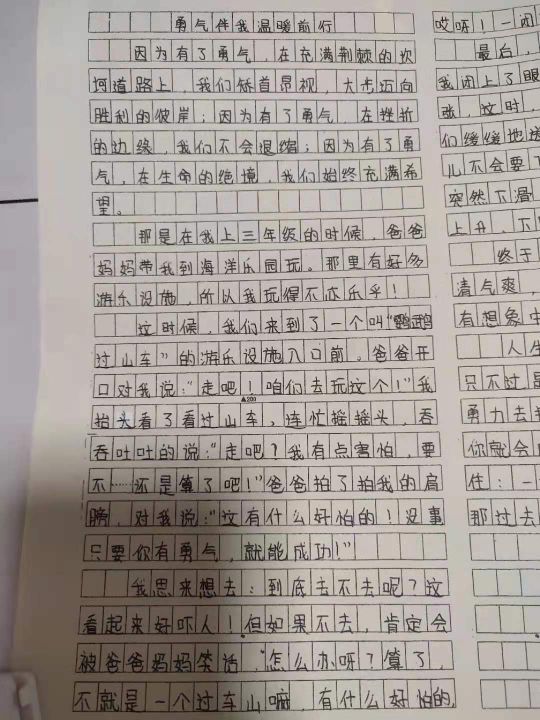 勇气伴我温暖前行
因为有了勇气，在充满荆棘的坎
坷道路上，我们矫首昂视，大步迈向
胜利的彼岸；因为有了勇气，在挫折
的边缘，我们不会退缩；因为有了勇
气，在生命的绝境，我们始终充满希
望。
那是在我上三年级的时候，爸爸
妈妈带我到海洋乐园玩。那里有好多
游乐设施，所以我玩得不亦乐乎！
这时候，我们来到了一个叫“鹦鹉
过山车”的游乐设施入口前。爸爸开
口对我说：“走吧！咱们去玩这个！”我
▲200
抬头看了看过山车，连忙摇摇头，吞
吞吐吐的说：“走吧？我有点害怕，要
不……还是算了吧！”爸爸拍了拍我的肩
膀，对我说：“这有什么好怕的！没事
只要你有勇气，就能成功！”
我思来想去：到底去不去呢？这
看起来好吓人！但如果不去，肯定会
被爸爸妈妈笑话，怎么办呀？算了，
不就是一个过车山嘛，有什么好怕的，
哎呀！一闭
最后，
我闭上了眼
张，这时，
们缓缓地送
儿不会要下
突然下滑
上升、下
终于
清气爽，
有想象中
人生
只不过是
勇力去
你就会
住：一
那过去